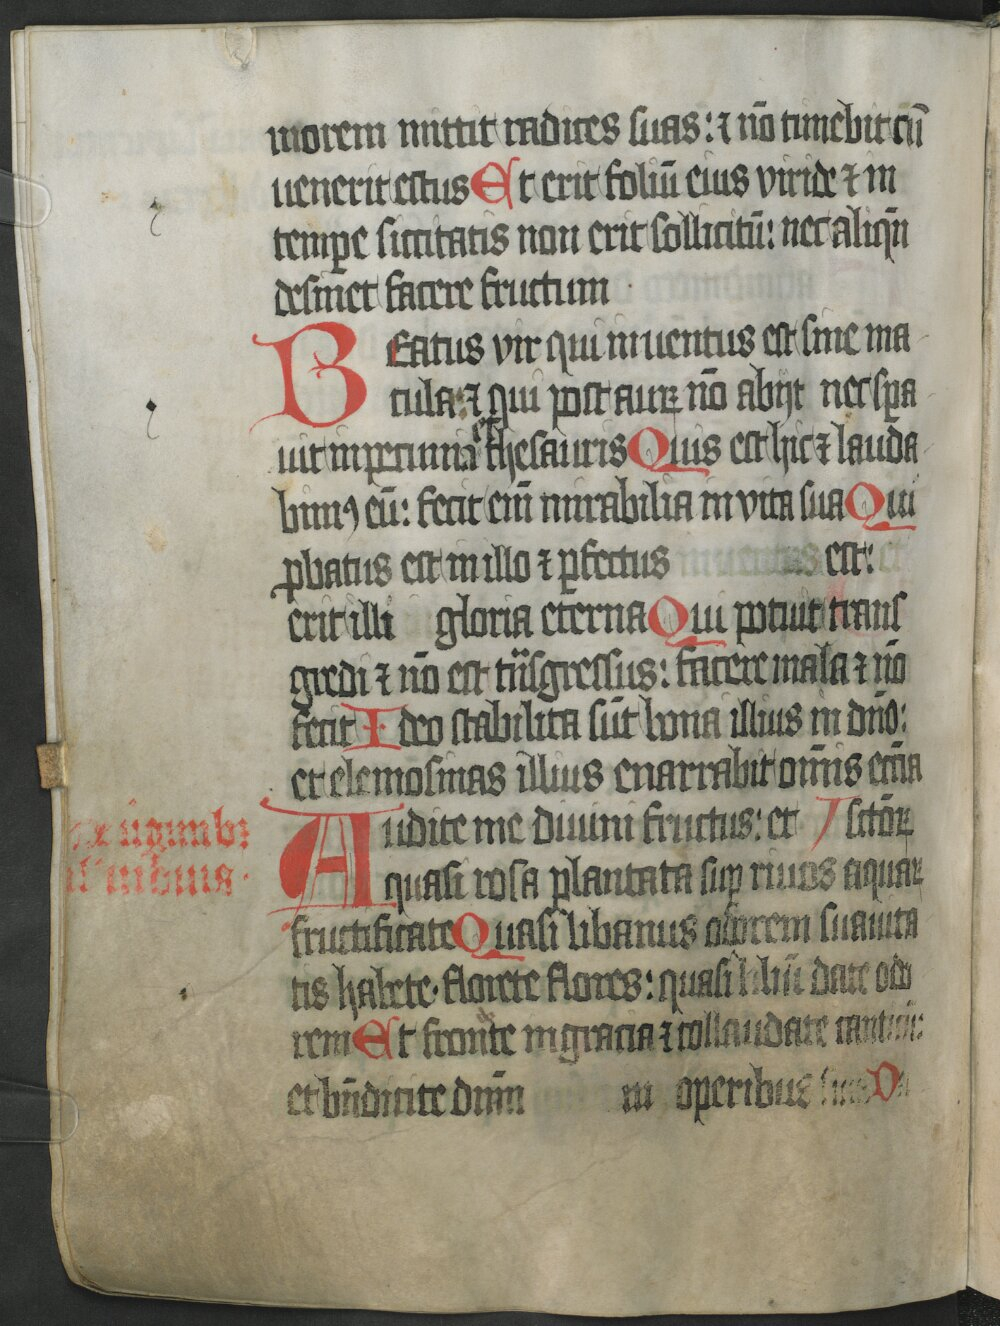 morem mittit radices suas: ⁊ nō timebit cū
uenerit estus Et erit foliū eius viride ⁊ in
tempe siccitatis non erit sollicitū: nec aliqn̄
desinet facere fructum
BEatus vir qui inuentus est sine ma
cula: ⁊ qui post auꝝ nō abijt nec spa
uit in pecunia et thesauris Quis est hic ⁊ lauda
bimꝰ eū: fecit em̄ mirabilia in vita sua Qui
ꝓbatus est in illo ⁊ ꝑfectus est:
erit illi gloria eterna Qui potuit trans
gredi ⁊ nō est trn̄sgressus: facere mala ⁊ nō
fecit Ideo stabilita sūt bona illius in dn̄o:
et elemosinas illius enarrabit om̄is eccīa
Audite me diuini fructus: et
quasi rosa plantata suꝑ riuos aquaꝝ
fructificate Quasi libanus odorem suauita
tis habete· florete flores: quasi liliū date odo
rem Et fronte in gracia ⁊ collaudate canticū:
et bn̄dicite dn̄m in operibus suis